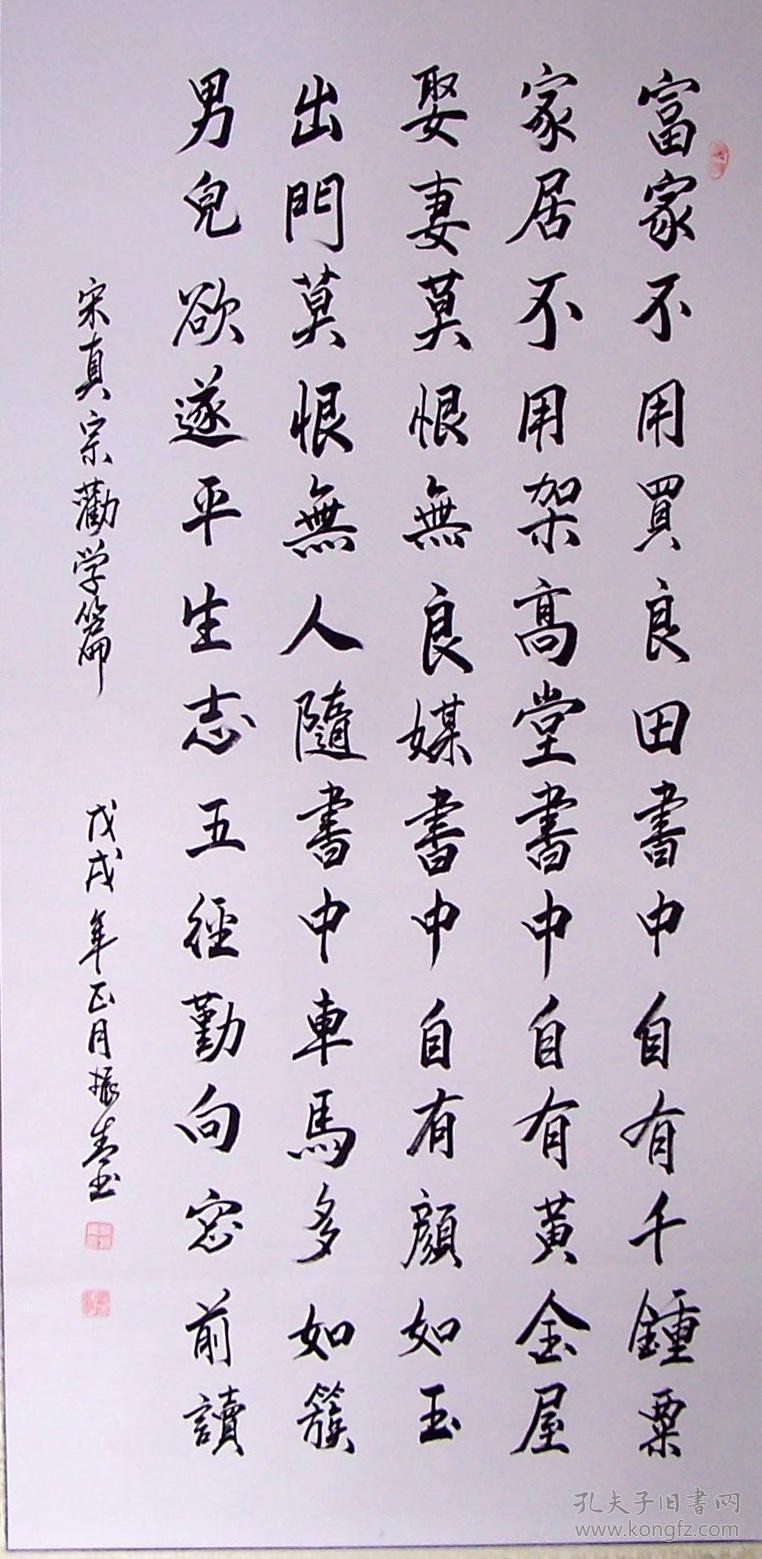 富家不用買良田書中自有千鍾粟
家居不用架高堂書中自有黃金屋
娶妻莫恨無良媒書中自有顏如玉
出門莫恨無人隨書中車馬多如簇
男兒欲遂平生志五徑勤向窓前讀
宋真宗勸学篇
戊戌年正月振
孔夫子旧书网
www.kongfz.com